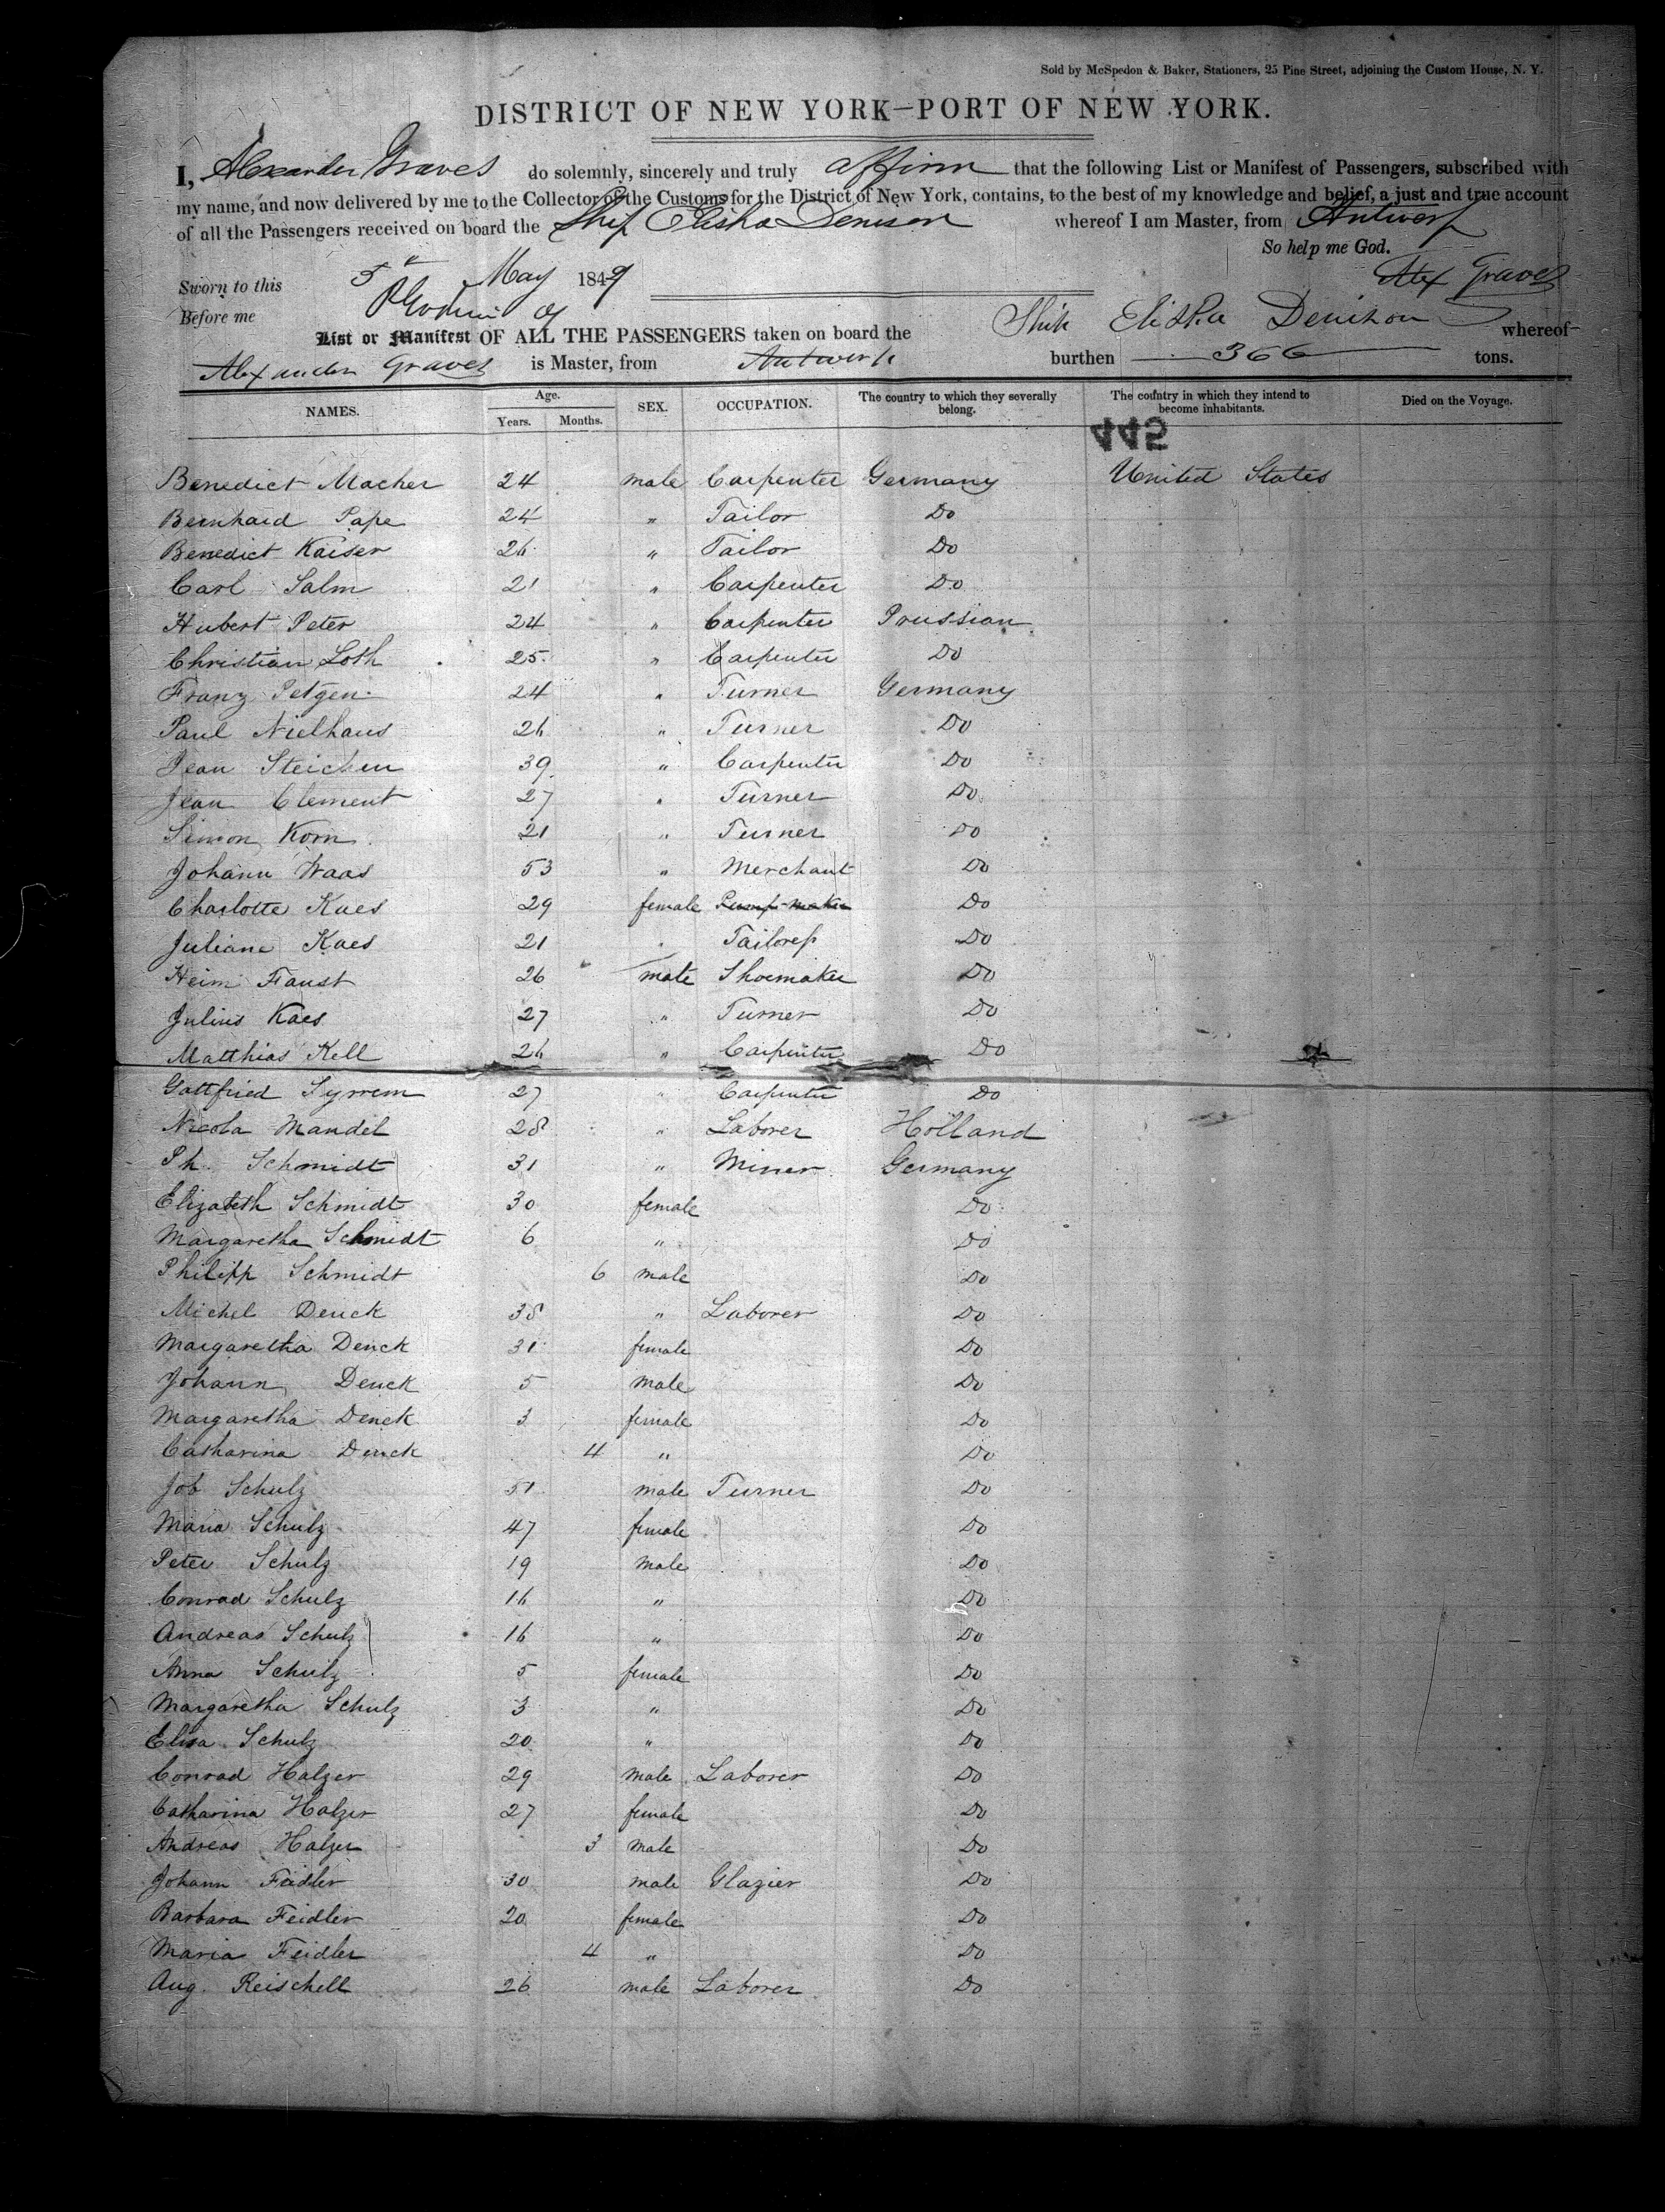 Sold by McSpedon & Baker, Stationers, 25 Pine Street, adjoining the Custom House, N. Y.
DISTRICT OF NEW YORK—PORT OF NEW YORK.
I, Alexander Graves do solemnly, sincerely and truly affirm that the following List or Manifest of Passengers, subscribed with
my name, and now delivered by me to the Collector of the Customs for the District of New York, contains, to the best of my knowledge and belief, a just and true account
of all the Passengers received on board the Ship Elisha Denison whereof I am Master, from Antwerp
So help me God.
Sworn to this 5 May 1849 Alex Graves
Before me
List or Manifest OF ALL THE PASSENGERS taken on board the Ship Elisha Denison whereof
Alexander Graves is Master, from Antwerp burthen 366 tons.
NAMES. Age. Years. Months. SEX. OCCUPATION. The country to which they severally belong. The country in which they intend to become inhabitants. Died on the Voyage.
445
Benedict Macher 24 male Carpenter Germany United States
Bernhard Pape 24 " Tailor Do
Benedict Kaiser 26 " Tailor Do
Carl Salm 21 " Carpenter Do
Hubert Peter 24 " Carpenter Prussian
Christian Loth 25 " Carpenter Do
Franz Petgen 24 " Turner Germany
Paul Nielhaus 26 " Turner Do
Jean Steichen 39 " Carpenter Do
Jean Clement 27 " Turner Do
Simon Korn 21 " Turner Do
Johann Waas 53 " Merchant Do
Charlotte Kaes 29 female Pump-maker Do
Juliane Kaes 21 " Tailoress Do
Heim Faust 26 male Shoemaker Do
Julius Kaes 27 " Turner Do
Matthias Kell 26 " Carpenter Do
Gottfried 27 " Carpenter Do
Nicola Mandel 28 " Laborer Holland
Ph. Schmidt 31 " Miner Germany
Elizabeth Schmidt 30 female Do
Margaretha Schmidt 6 " Do
Philipp Schmidt 6 male Do
Michel Denck 38 " Laborer Do
Margaretha Denck 31 female Do
Johann Denck 5 male Do
Margaretha Denck 3 female Do
Catharina Denck 4 " Do
Job Schulz 51 male Turner Do
Maria Schulz 47 female Do
Peter Schulz 19 male Do
Conrad Schulz 16 " Do
Andreas Schulz 16 " Do
Anna Schulz 5 female Do
Margaretha Schulz 3 " Do
Elisa Schulz 20 " Do
Conrad Halzer 29 male Laborer Do
Catharina Halzer 27 female Do
Andreas Halzer 3 male Do
Johann Feidler 30 male Glazier Do
Barbara Feidler 20 female Do
Maria Feidler 4 " Do
Aug. Reischell 26 male Laborer Do